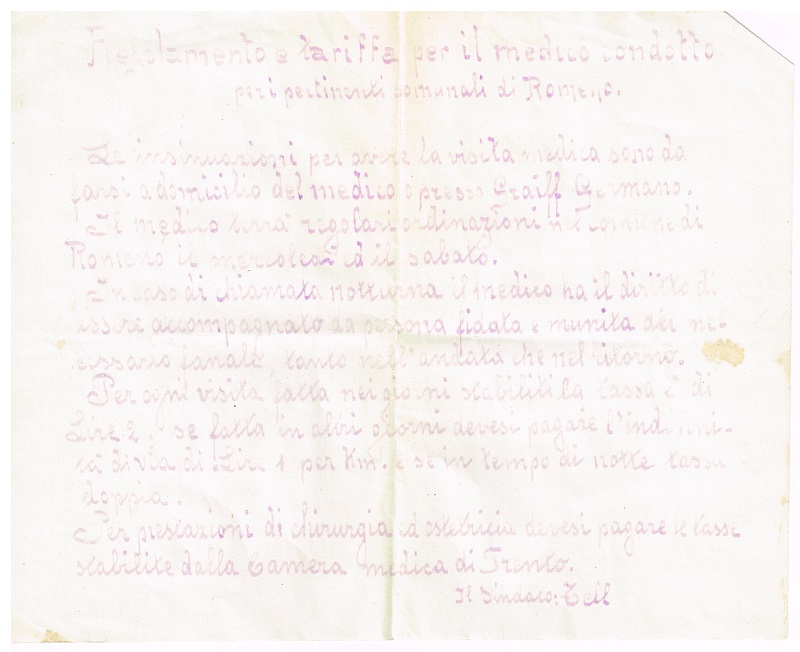 Regolamento e tariffa per il medico condotto
per i pertinenti comunali di Romeno.
Le insinuazioni per avere la visita medica sono da
farsi a domicilio del medico o presso Graiff Germano.
Il medico terrà regolari ordinazioni nel comune di
Romeno il mercoledì ed il sabato.
In caso di chiamata notturna il medico ha il diritto di
essere accompagnato da persona fidata e munita del ne-
cessario fanale tanto nell'andata che nel ritorno.
Per ogni visita fatta nei giorni stabiliti la tassa è di
Lire 2, se fatta in altri giorni devesi pagare l'indenni-
tà di via di Lire 1 per Km. e se in tempo di notte tassa
doppia.
Per prestazioni di chirurgia ed ostetricia devesi pagare le tasse
stabilite dalla Camera medica di Trento.
Il Sindaco: Tell